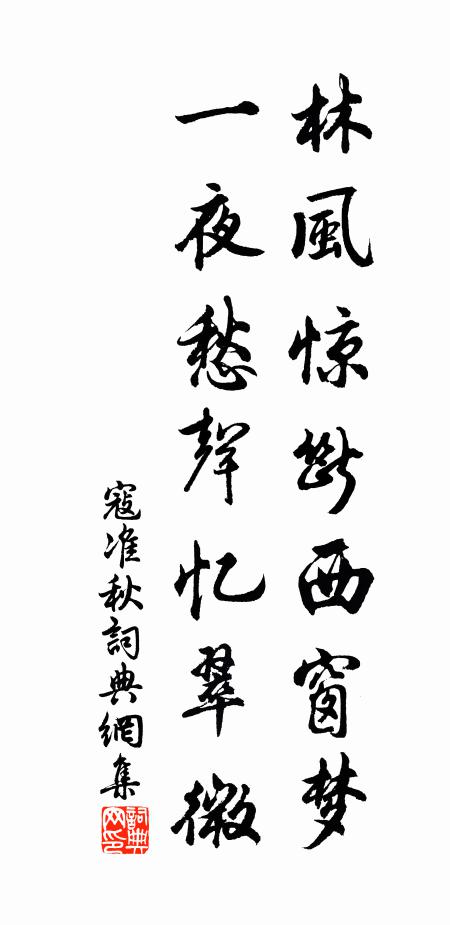 林風惊斷西窗梦
一夜愁聲忆翠微
寇准秋詞典網集
詞典网印